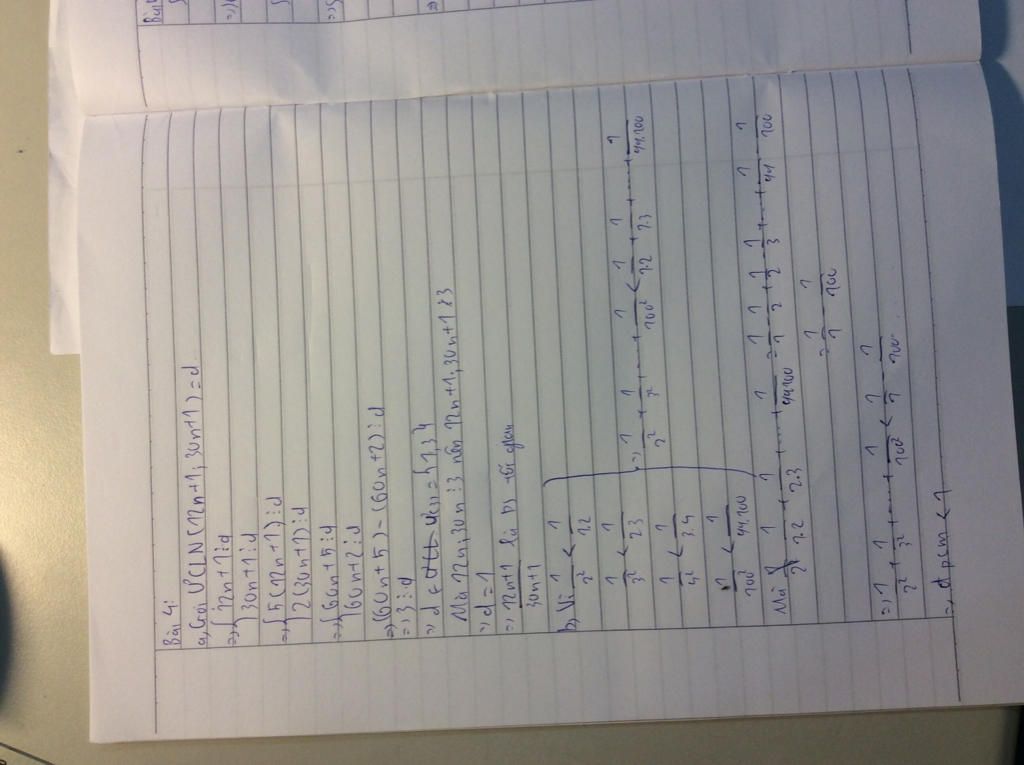 Bài 4:
a, Gọi ƯCLN(12n+1, 30n+1) = d
=> { 12n+1 ⋮ d
{ 30n+1 ⋮ d
=> { 5(12n+1) ⋮ d
{ 2(30n+1) ⋮ d
=> { 60n+5 ⋮ d
{ 60n+2 ⋮ d
=> (60n+5) - (60n+2) ⋮ d
=> 3 ⋮ d
=> d ∈ Ư(3) = {1,3}
Mà 12n, 30n ⋮ 3 nên 12n+1, 30n+1 ⋮̸ 3
=> d = 1
=> 12n+1/30n+1 là PS tối giản
b, Vì 1/2² < 1/1.2
1/3² < 1/2.3
1/4² < 1/3.4
1/100² < 1/99.100
=> 1/2² + 1/3² + .... + 1/100² < 1/1.2 + 1/2.3 + .... + 1/99.100
Mà 1/1.2 + 1/2.3 + .... + 1/99.100 = 1/1 - 1/2 + 1/2 - 1/3 + ... + 1/99 - 1/100
= 1/1 - 1/100
=> 1/2² + 1/3² + .... + 1/100² < 1/1 - 1/100
=> đpcm < 1
Bài